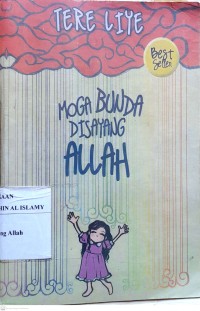 TERE LIYE
Best
Seller
MOGA BUNDA
DISAYANG
ALLAH
KAAN
HIN AL ISLAMY
ng Allah